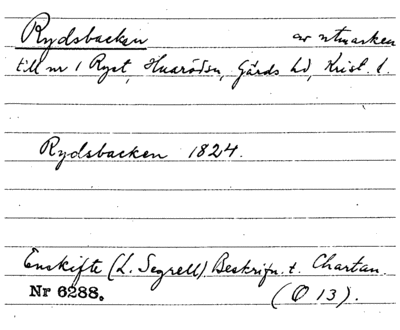 Rydsbacken av utmarken
till nr 1 Ryet, Huaröds sn, Gärds hd, Krist. l.
Rydsbacken 1824.
Enskifte (L. Segrell) Beskrifn. t. Chartan.
Nr 6288. (O 13).